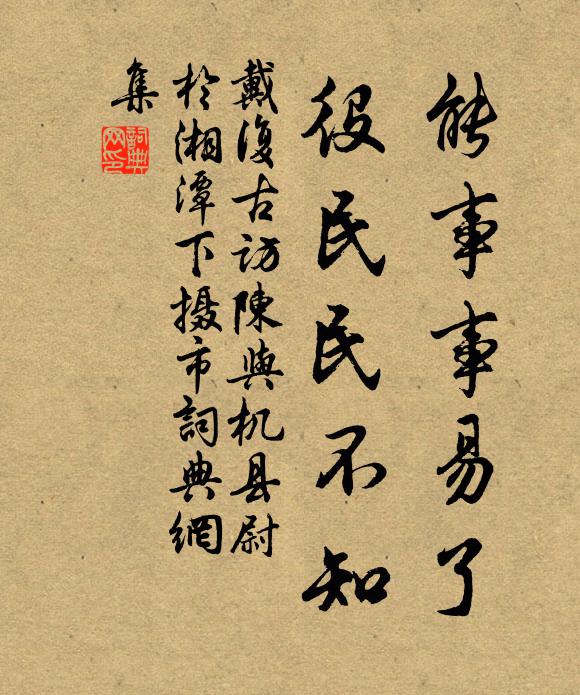 能事事易了
役民民不知
戴復古訪陳與机县尉
於湘潭下摄市詞典網
集
詞典網印